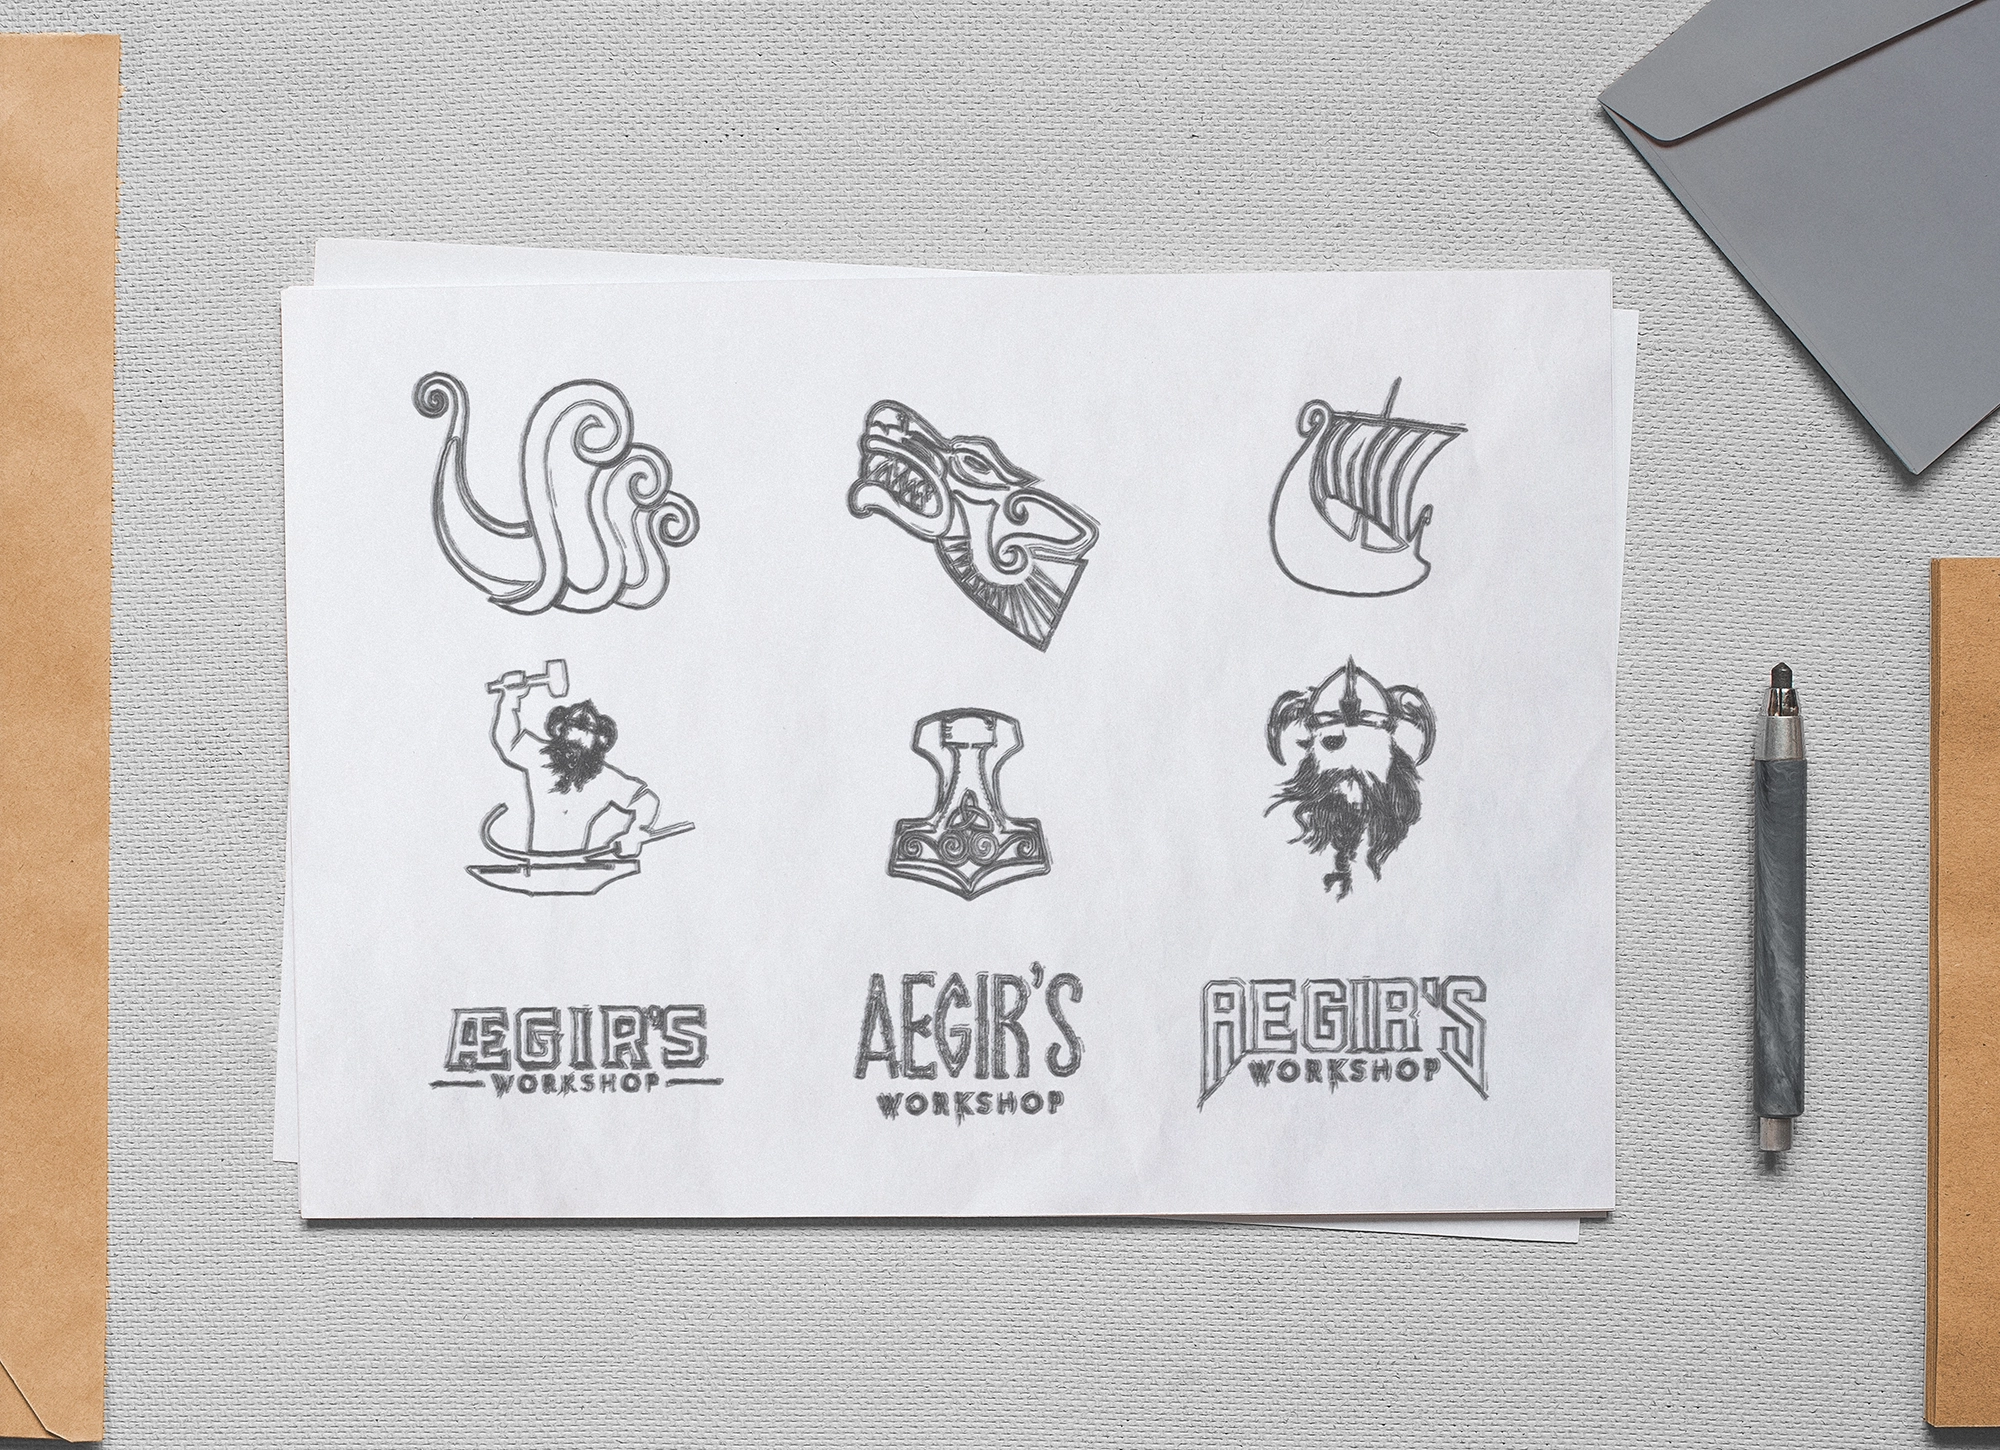 ÆGIR'S
WORKSHOP
AEGIR'S
WORKSHOP
AEGIR'S
WORKSHOP